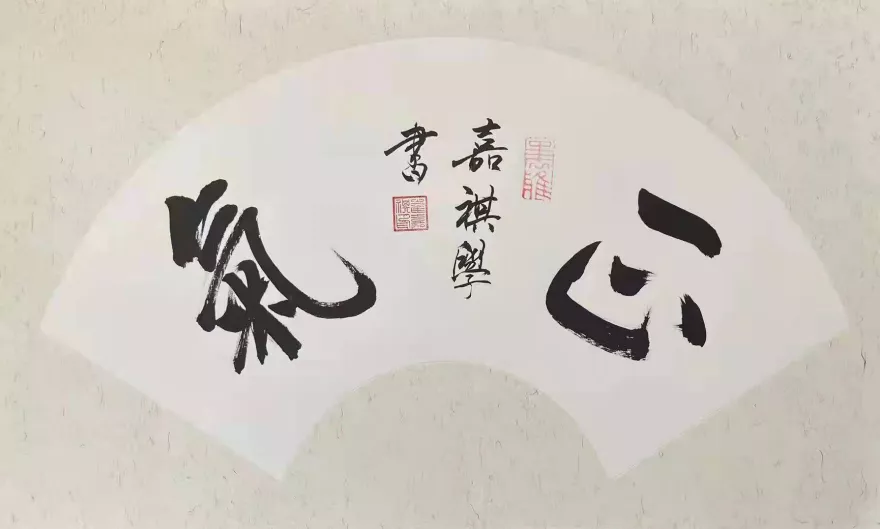 正氣
嘉祺學
書